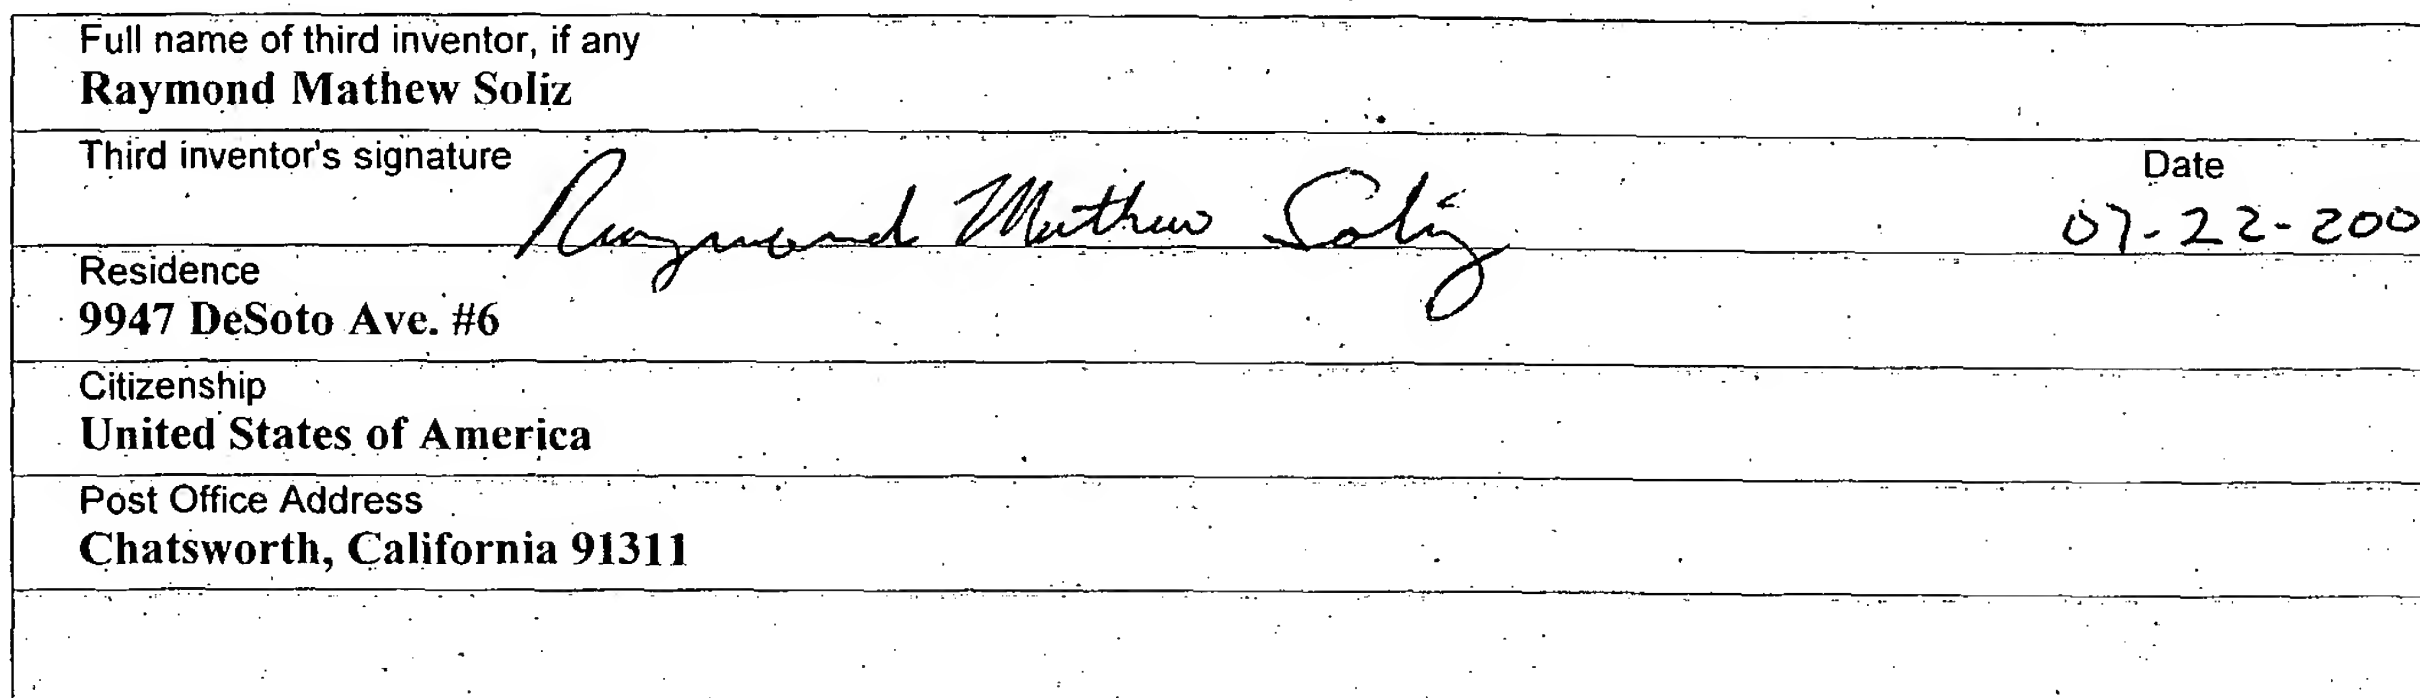 Full name of third inventor, if any
Raymond Mathew Soliz
Third inventor's signature
Raymond Mathew Soliz
Date
07-22-200
Residence
9947 DeSoto Ave. #6
Citizenship
United States of America
Post Office Address
Chatsworth, California 91311